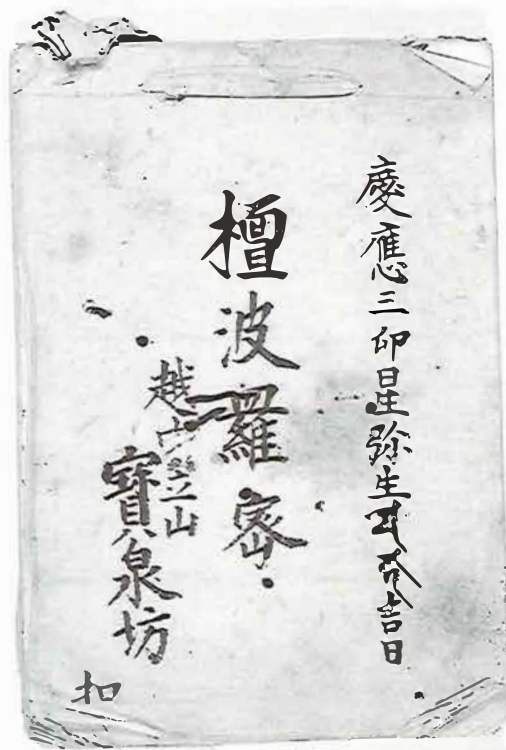 慶應三卯星弥生吉日
檀波羅密
越中立山
寶泉坊
扣